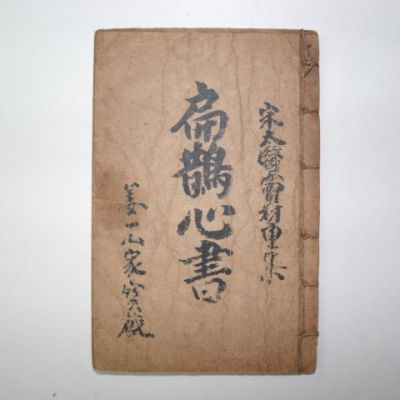 宋太醫竇材重集
扁鵲心書
姜一山家珍藏